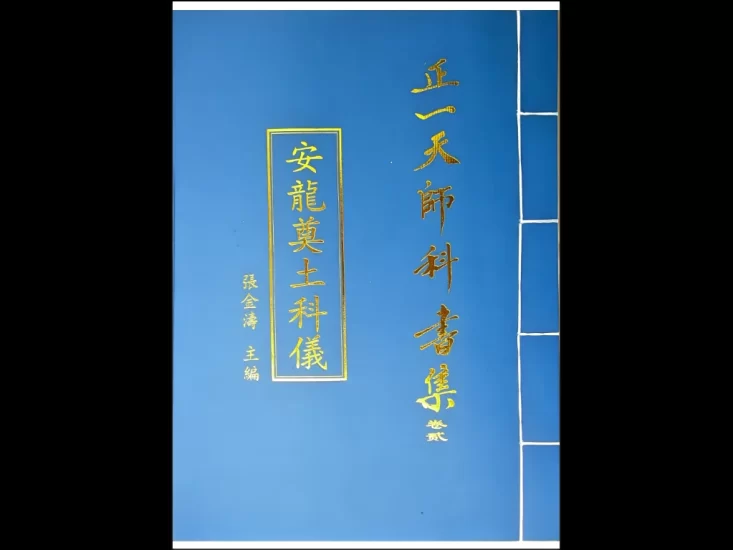 正一天師科書集
卷貳
安龍奠土科儀
張金濤 主編